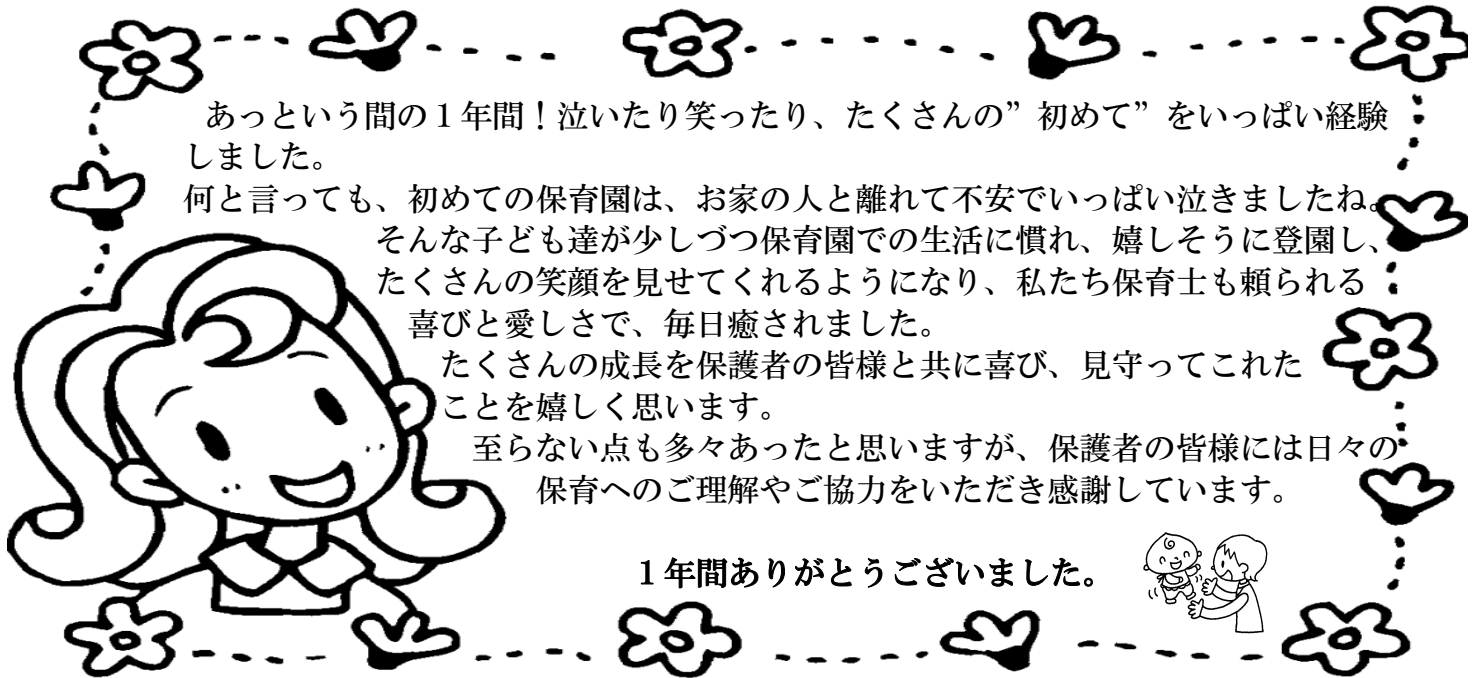 あっという間の１年間！泣いたり笑ったり、たくさんの”初めて”をいっぱい経験
しました。
何と言っても、初めての保育園は、お家の人と離れて不安でいっぱい泣きましたね。
そんな子ども達が少しづつ保育園での生活に慣れ、嬉しそうに登園し、
たくさんの笑顔を見せてくれるようになり、私たち保育士も頼られる
喜びと愛しさで、毎日癒されました。
たくさんの成長を保護者の皆様と共に喜び、見守ってこれた
ことを嬉しく思います。
至らない点も多々あったと思いますが、保護者の皆様には日々の
保育へのご理解やご協力をいただき感謝しています。
１年間ありがとうございました。